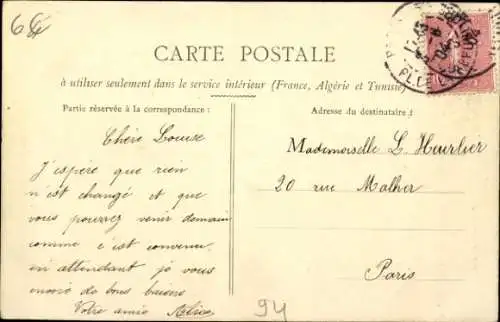 64
CARTE POSTALE
à utiliser seulement dans le service intérieur (France, Algérie et Tunisie)
Partie réservée à la correspondance:
Adresse du destinataire:
Chère Louise
J'espère que rien
n'est changé et que
vous pourrez venir demain
comme c'est convenu.
en attendant je vous
envoie de bons baisers
Votre amie Alice
Mademoiselle L. Heurlier
20 rue Malher
Paris
94